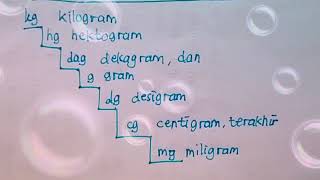 kg kilogram
hg hektogram
dag dekagram, dan
g gram
dg desigram
cg centigram, terakhir
mg miligram